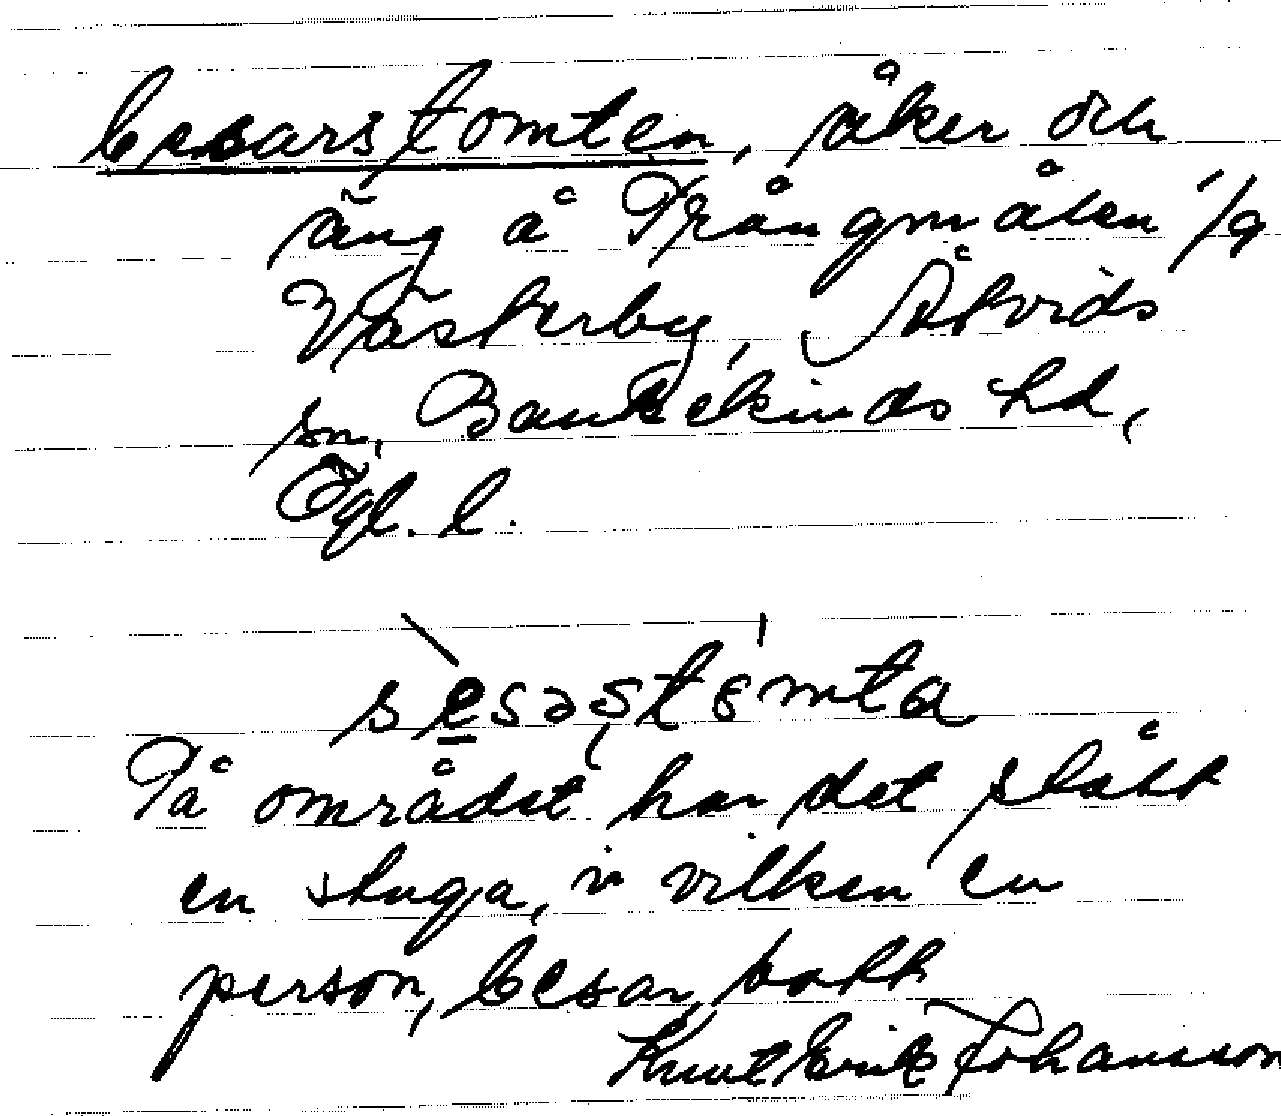 Cesarstomten, åker och
äng å Trångmålen 1/9
Västerby, Åtvids
sn, Bankekinds hd,
Ögl. l.
På området har det stått
en stuga, i vilken en
person, Cesar, bott
Knut Erik Johansson